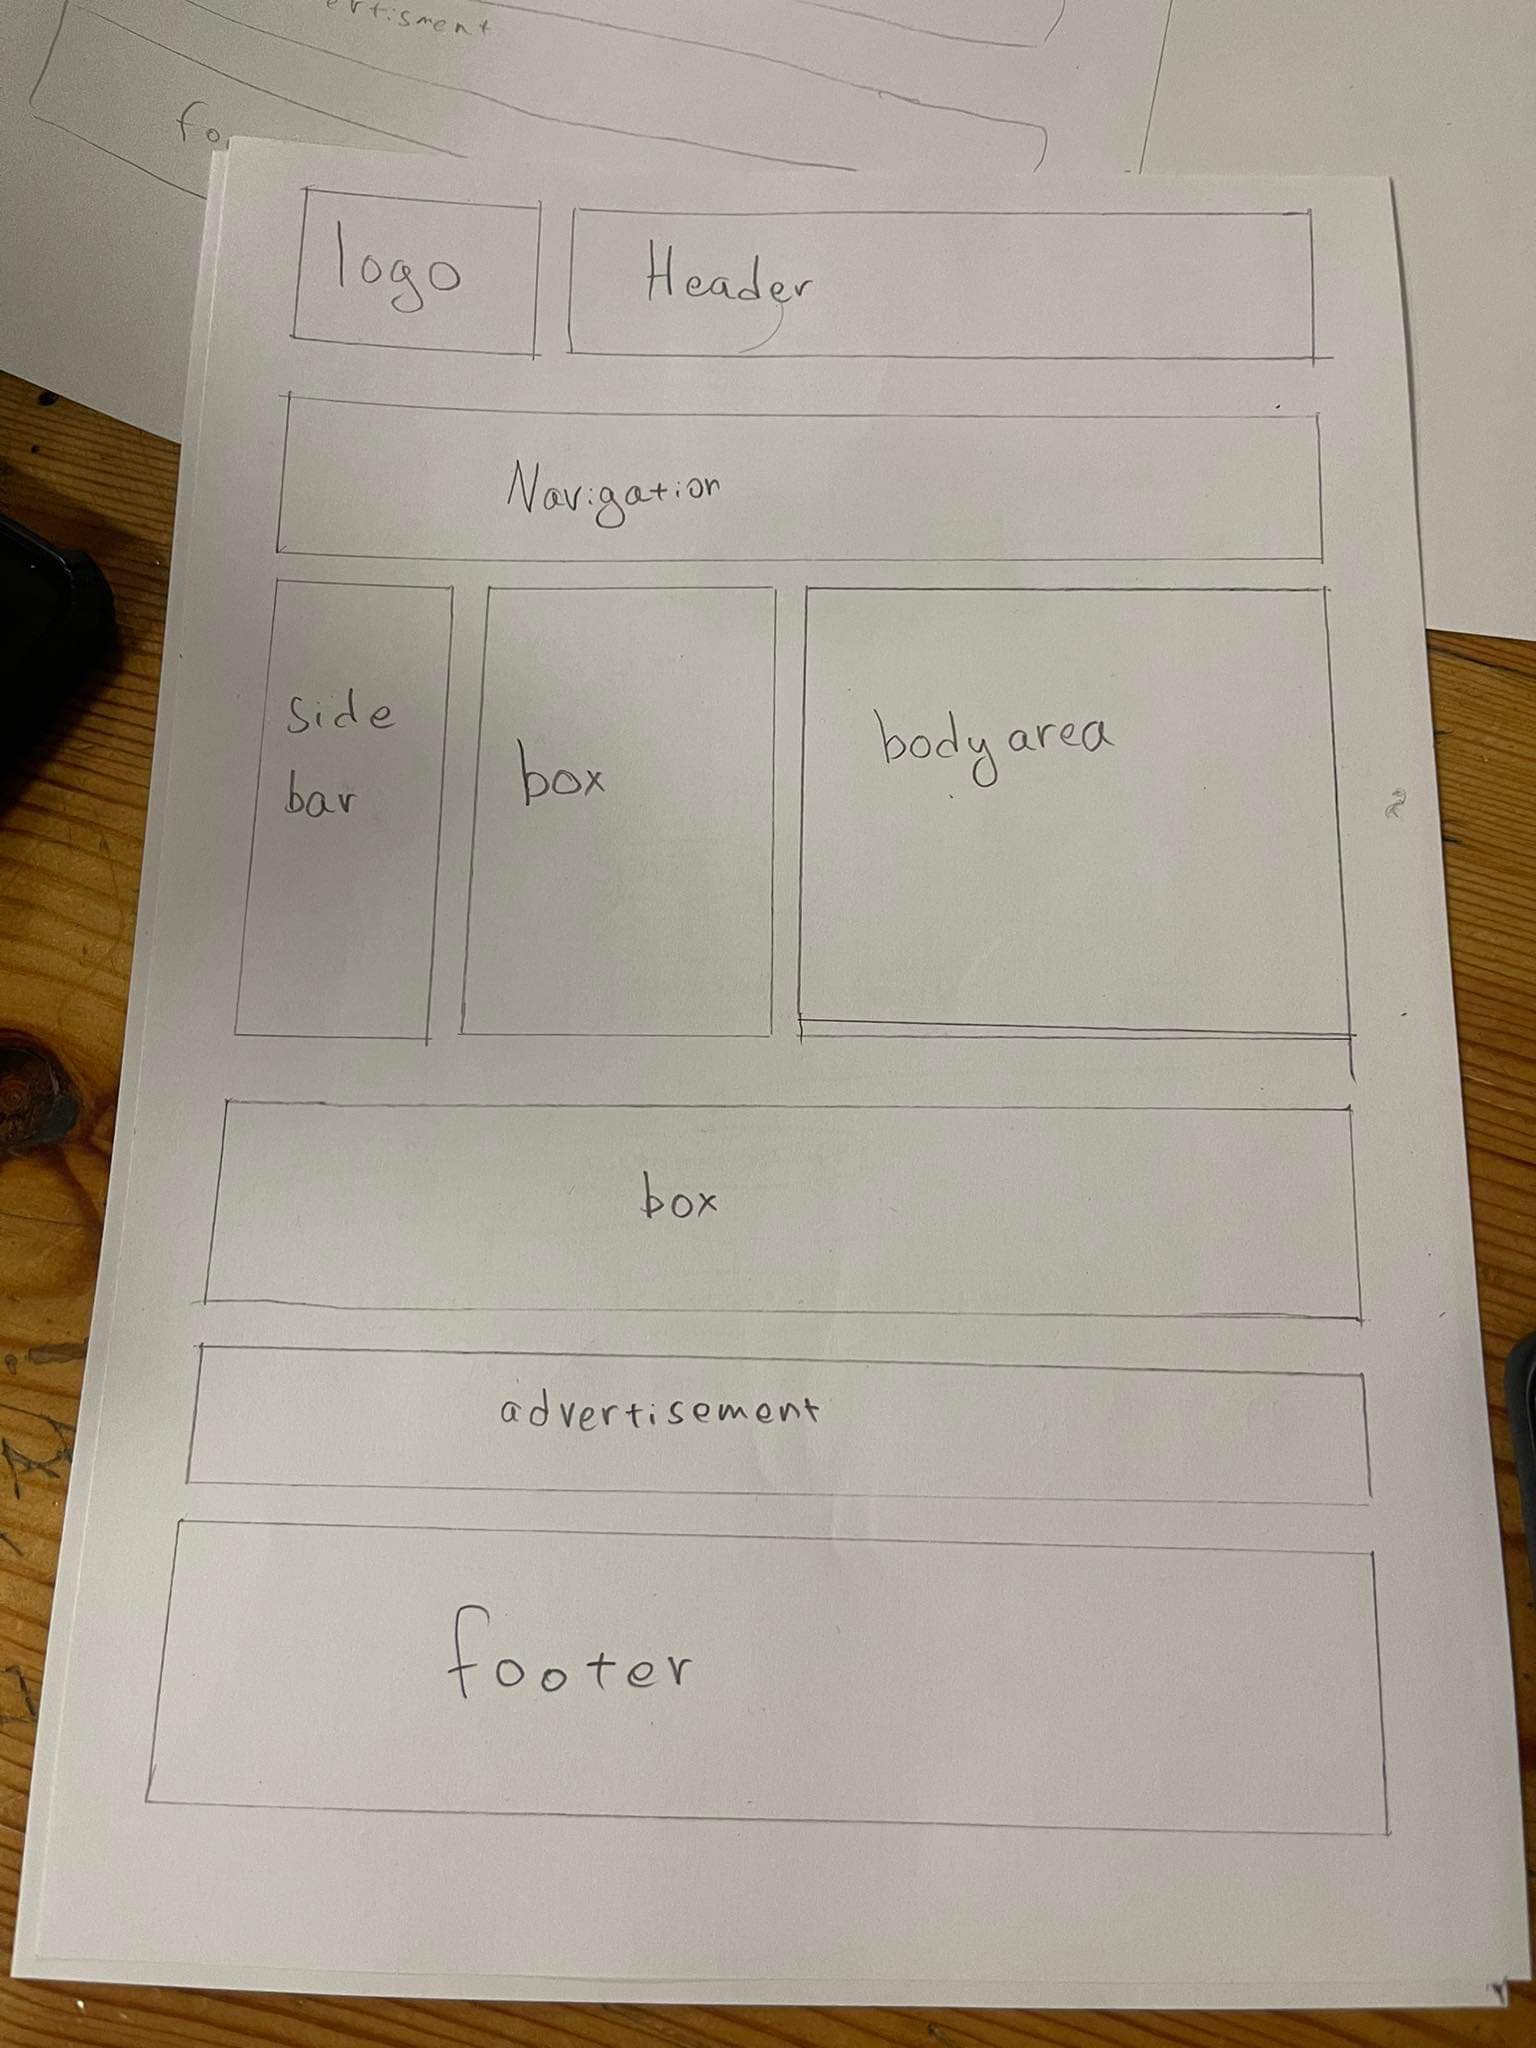 ertisment
fo
logo
Header
Navigation
side
bar
box
body area
box
advertisement
footer